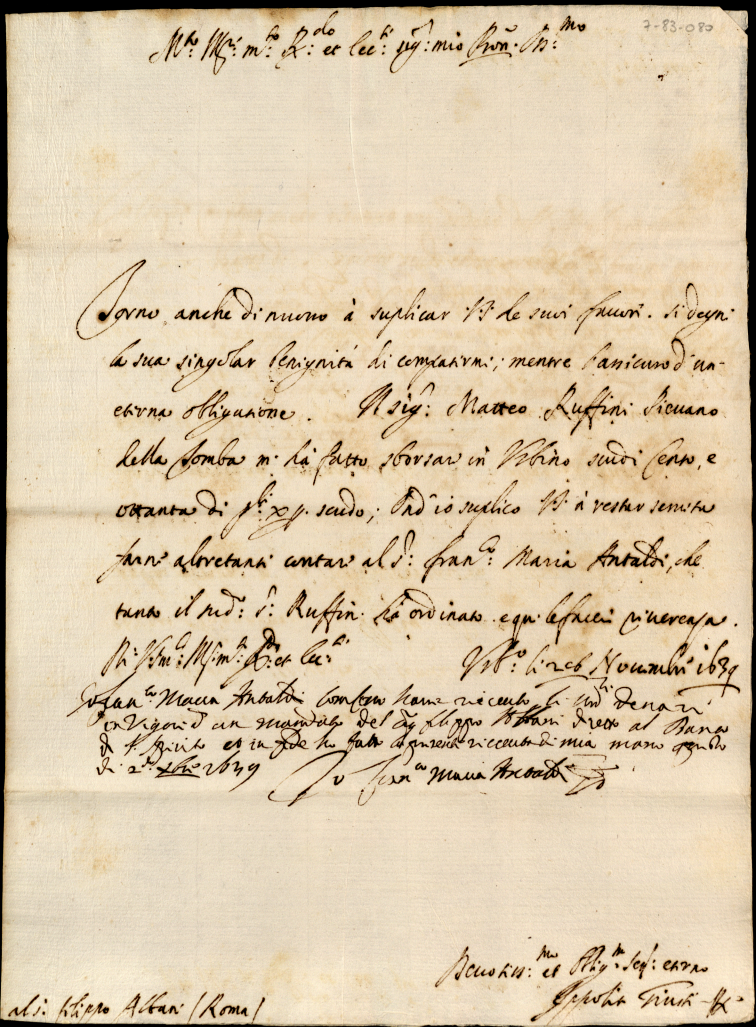 7-83-080
M.to Ill.re m.to R.do et ecc.te sig.r mio Pron. Oss.mo
Torno anche di nuovo à suplicar VS de suoi favori. Si degni
la sua singolar benignità di compatirmi, mentre l'assicuro d'un-
eterna obligatione. Il sig.r Matteo Ruffini Pievano
della Tomba m. hà fatto sborsar in Urbino scudi Cento, e
ottanta di p.li x p. scudo; Ond'io suplico VS à restar servita
farne altretanti contare al S.r Fran.co Maria Antaldi, che
tanto il sud.o S.r Ruffin. hà ordinato. e qui le faccio riverenza.
Di VS m.to Ill.re m.to R.da et ecc.te
Urb.o li 26 Novembre 1639
Io Fran.co Maria Antaldi confesso haver riceuto li sud.ti denari
in vigor d'un mandato del sig Filippo Albani diretto al Banco
di S. Spirito et in fede ho fatto la presente riceuta di mia mano questo
di 2 Xbre 1639 Io Fran.co Maria Antaldi
Devotiss.mo et Oblig.mo ser.r eterno
Ippolito Giusti
al S. Filippo Albani (Roma)